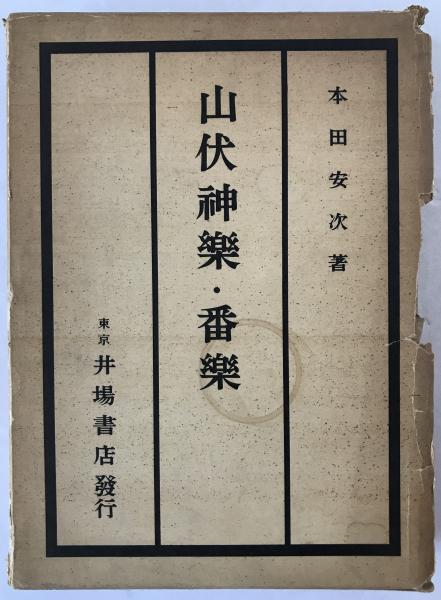 本田安次著
山伏神樂・番樂
東京 井場書店發行